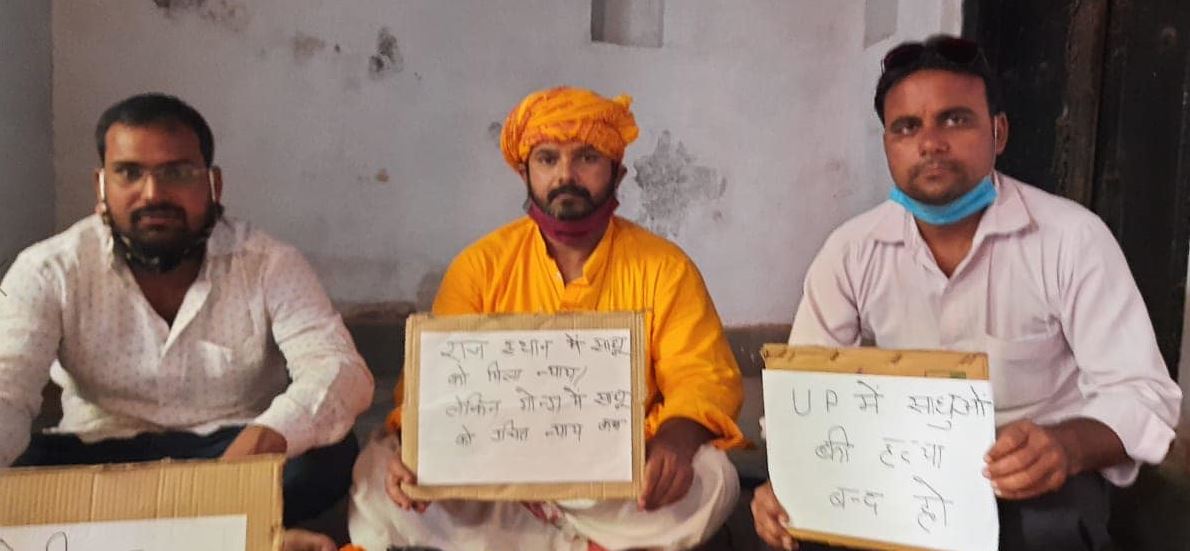 राज स्थान में साधू
को मिला न्याय/
लेकिन गोन्डा में साधू
को उचित न्याय कब
UP में साधुओं
की हत्या
बन्द हो